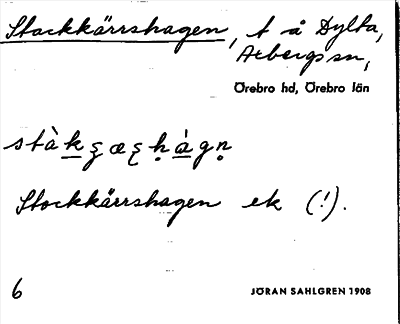 Stackkärrshagen, t å Dylta,
Axbergs sn,
Örebro hd, Örebro län
stàkʒæʒhágn
Stockkärrshagen ek (!).
6 JÖRAN SAHLGREN 1908